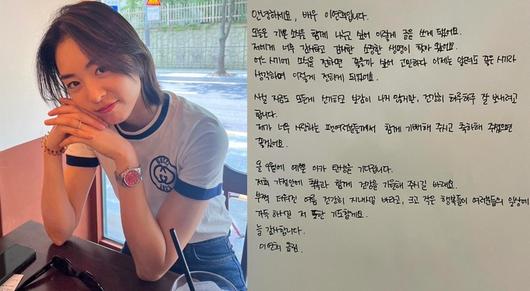 안녕하세요, 배우 이연희입니다.
오늘은 기쁜 소식을 함께 나누고 싶어 이렇게 글을 쓰게 됐어요.
저에게 너무 감사하고 소중한 생명이 찾아 왔어요.
어느 시기에 소식을 전하면 좋을까 싶어 고민하다 이제는 알려도 좋은 시기라
생각하며 이렇게 전하게 되었어요.
사실 지금도 모든게 신기하고 실감이 나지 않지만, 건강히 하루하루 잘 보내려고
합니다.
제가 너무 사랑하는 팬여러분들께서 함께 기뻐해 주시고 축하해 주셨으면
좋겠어요.
올 9월에 예쁜 아가 탄생을 기다립니다.
저희 가정안에 축복과 함께 건강을 기도해 주시길 바라요.
부쩍 더워진 여름 건강히 지내시길 바라고, 크고 작은 행복들이 여러분들의 일상에
가득하시길 저 또한 기도할게요.
늘 감사합니다.
이연희 올림.